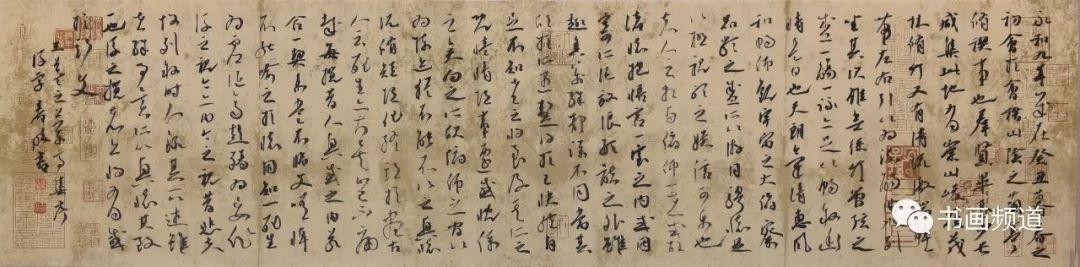 永和九年歲在癸丑暮春之
初會於會稽山陰之蘭亭
脩禊事也群賢畢至少長
咸集此地有崇山峻領茂
林脩竹又有清流激湍映
帶左右引以為流觴曲水列
坐其次雖無絲竹管絃之
盛一觴一詠亦足以暢敘幽
情是日也天朗氣清惠風
和暢仰觀宇宙之大俯察
品類之盛所以遊目騁懷足
以極視聽之娛信可樂也
夫人之相與俯仰一世或取
諸懷抱悟言一室之內或因
寄所託放浪形骸之外雖
趣舍萬殊靜躁不同當其
欣於所遇暫得於己快然自
足不知老之將至及其所之
既惓情隨事遷感慨係
之矣向之所欣俛仰之間以
為陳迹猶不能不以之興懷
況脩短隨化終期於盡古
人云死生亦大矣豈不痛
哉每攬昔人興感之由若
合一契未嘗不臨文嗟悼
不能喻之於懷固知一死生
為虛誕齊彭殤為妄作
後之視今亦由今之視昔悲夫
故列敘時人錄其所述雖
世殊事異所以興懷其致
一也後之攬者亦將有感
於斯文
王羲之蘭亭集序
书画频道